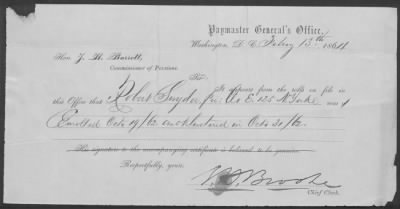 Paymaster General's Office,
Washington, D. C. Feb'y 13th 1864
Hon. J. H. Barrett,
Commissioner of Pensions
Sir
It appears from the rolls on file in
this Office that Robert Snyder, Co. E. 125 was
Enrolled Oct 19/62 and Mustered in Oct 30/62.
His signature to the accompanying certificate is believed to be genuine.
Respectfully, yours,
Brooke
Chief Clerk.